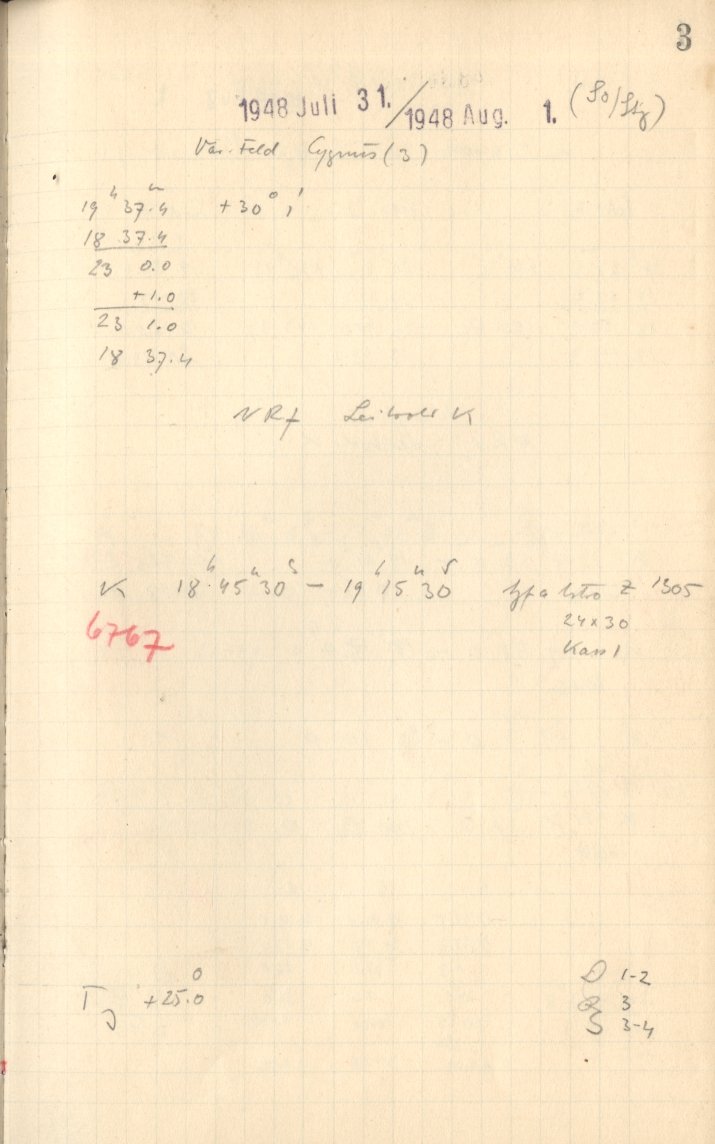 3
1948 Juli 31./1948 Aug. 1. (So/Stz)
Var. Feld Cygnus (3)
19ʰ 37ᵐ.4 +30° 1'
18 37.4
23 0.0
+1.0
23 1.0
18 37.4
K 18ʰ 45ᵐ 30ˢ – 19ʰ 15ᵐ 30ˢ Agfa Astro Z 1305
6767
24 x 30
Kass 1
T +25.0°
D 1-2
R 3
S 3-4